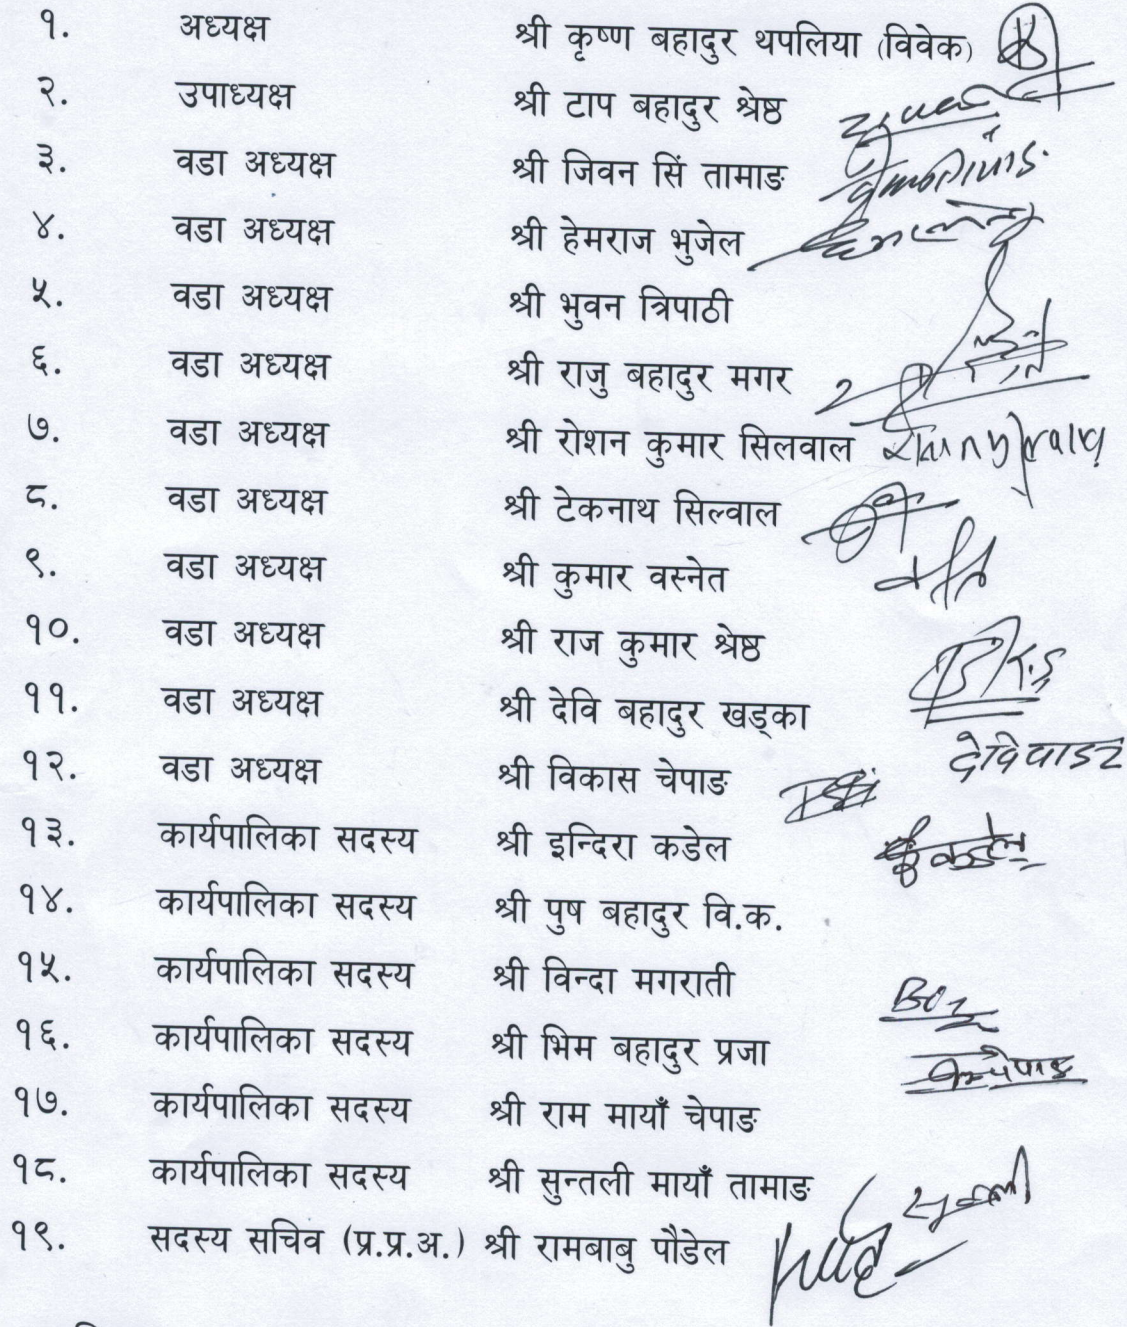 १. अध्यक्ष श्री कृष्ण बहादुर थपलिया (विवेक)
२. उपाध्यक्ष श्री टाप बहादुर श्रेष्ठ
३. वडा अध्यक्ष श्री जिवन सिं तामाङ
४. वडा अध्यक्ष श्री हेमराज भुजेल
५. वडा अध्यक्ष श्री भुवन त्रिपाठी
६. वडा अध्यक्ष श्री राजु बहादुर मगर
७. वडा अध्यक्ष श्री रोशन कुमार सिलवाल
८. वडा अध्यक्ष श्री टेकनाथ सिल्वाल
९. वडा अध्यक्ष श्री कुमार वस्नेत
१०. वडा अध्यक्ष श्री राज कुमार श्रेष्ठ
११. वडा अध्यक्ष श्री देवि बहादुर खड्का
१२. वडा अध्यक्ष श्री विकास चेपाङ
१३. कार्यपालिका सदस्य श्री इन्दिरा कडेल कडेल
१४. कार्यपालिका सदस्य श्री पुष बहादुर वि.क.
१५. कार्यपालिका सदस्य श्री विन्दा मगराती
१६. कार्यपालिका सदस्य श्री भिम बहादुर प्रजा
१७. कार्यपालिका सदस्य श्री राम मायाँ चेपाङ
१८. कार्यपालिका सदस्य श्री सुन्तली मायाँ तामाङ
१९. सदस्य सचिव (प्र.प्र.अ.) श्री रामबाबु पौडेल